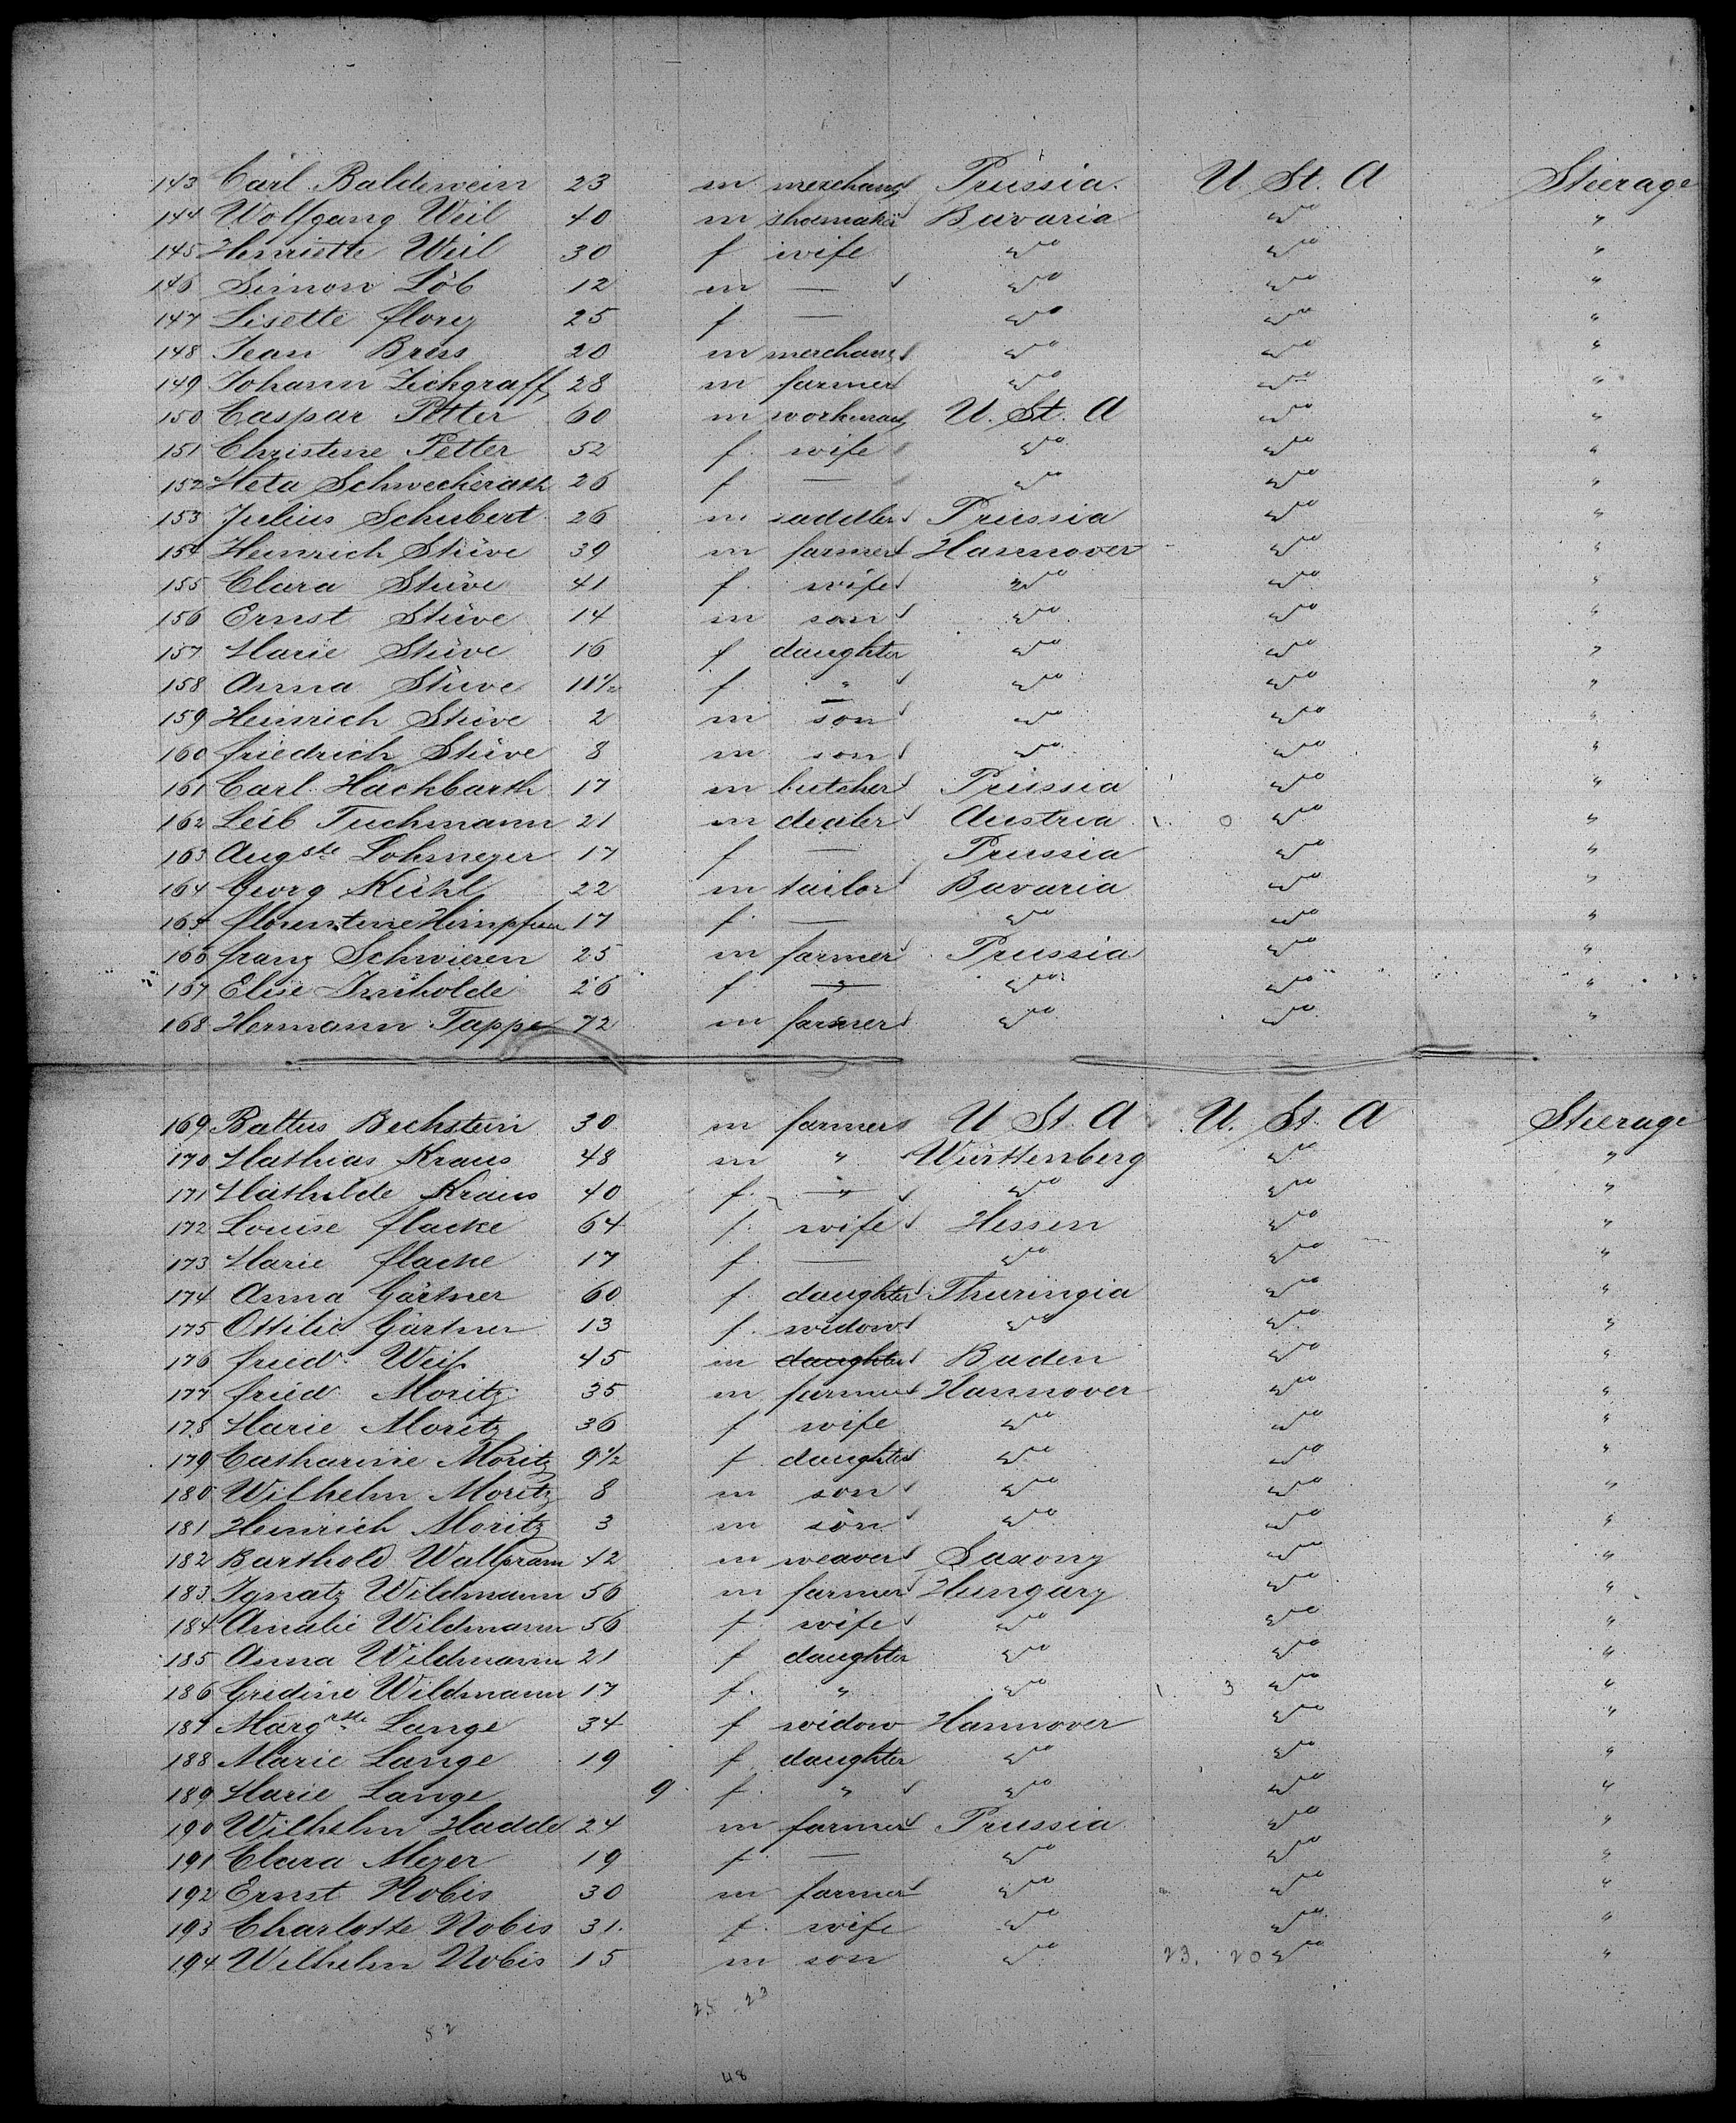 143 Carl Baldewein 23 m merchant Prussia. U. St. A Steerage
144 Wolfgang Weil 40 m shoemaker Bavaria do "
145 Henriette Weil 30 f wife do do "
146 Simon Löb 12 m — do do "
147 Lisette Florey 25 f — do do "
148 Jean Bross 20 m merchant do do "
149 Johann Zickgraff 28 m farmer do do "
150 Caspar Petter 60 m workman U. St. A do "
151 Christine Petter 52 f. wife do do "
152 Meta Schweckerath 26 f — do do "
153 Julius Schubert 26 m saddler Prussia do "
154 Heinrich Stüve 39 m farmer Hannover do "
155 Clara Stüve 41 f. wife do do "
156 Ernst Stüve 14 m son do do "
157 Marie Stüve 16 f daughter do do "
158 Anna Stüve 11½ f. " do do "
159 Heinrich Stüve 2 m son do do "
160 Friedrich Stüve 8 m son do do "
161 Carl Hackbarth 17 m butcher Prussia do "
162 Leib Tuchmann 21 m dealer Austria 0 do "
163 Augste Lohmeyer 17 f — Prussia do "
164 Georg Kühl 22 m tailor Bavaria do "
165 Florentine 17 f. — do do "
166 Franz Schwieren 25 m farmer Prussia do "
167 Elise 26 f " do do "
168 Hermann Tappe 72 m farmer do do "
169 Baltus Bechstein 30 m farmer U St. A U. St. A Steerage
170 Mathias Kraus 48 m " Württemberg do "
171 Mathilde Kraus 40 f. " do do "
172 Louise Flacke 64 f. wife Hessen do "
173 Marie Flacke 17 f. — do do "
174 Anna Gärtner 60 f. daughter Thuringia do "
175 Ottilie Gärtner 13 f. widow do do "
176 Fried. Weiß 45 m daughter Baden do "
177 Fried. Moritz 35 m farmer Hannover do "
178 Marie Moritz 36 f wife do do "
179 Catharine Moritz 9½ f. daughter do do "
180 Wilhelm Moritz 8 m son do do "
181 Heinrich Moritz 3 m son do do "
182 Barthold 42 m weaver Saxony do "
183 Ignatz Wildmann 56 m farmer Hungary do "
184 Amalie Wildmann 56 f. wife do do "
185 Anna Wildmann 21 f daughter do do "
186 Gredine Wildmann 17 f. " do 3 do "
187 Margrthe Lange 34 f widow Hannover do "
188 Marie Lange 19 f daughter do do "
189 Marie Lange 9 f. " do do "
190 Wilhelm Hadde 24 m farmer Prussia do "
191 Clara Meyer 19 f. — do do "
192 Ernst Nobis 30 m farmer do do "
193 Charlotte Nobis 31. f. wife do do "
194 Wilhelm Nobis 15 m son do 23. 20 do "
25 23
52
48